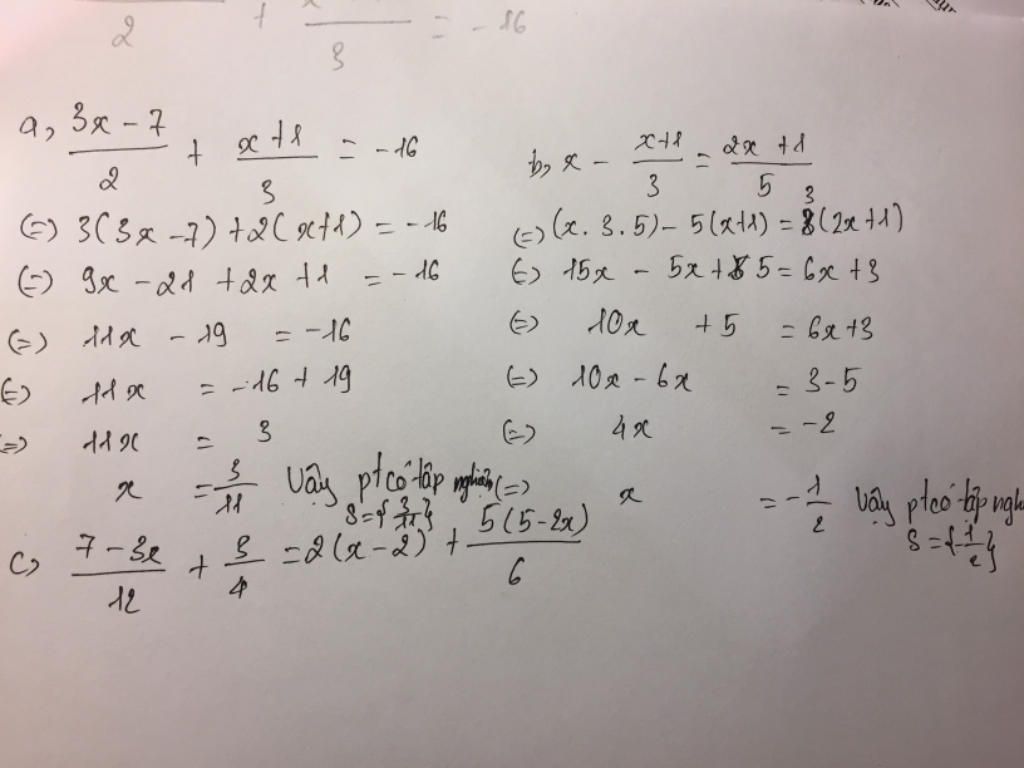 2 + 3 = -16
a, (3x - 7)/2 + (x + 1)/3 = -16
(=) 3(3x - 7) + 2(x + 1) = -16
(=) 9x - 21 + 2x + 1 = -16
(=) 11x - 19 = -16
(=) 11x = -16 + 19
(=) 11x = 3
x = 3/11 Vậy pt có tập nghiệm
S = {3/11}
b, x - (x + 1)/3 = (2x + 1)/5
(=) (x . 3 . 5) - 5(x + 1) = 3(2x + 1)
(=) 15x - 5x + 5 = 6x + 3
(=) 10x + 5 = 6x + 3
(=) 10x - 6x = 3 - 5
(=) 4x = -2
(=) x = -1/2 Vậy pt có tập
S = {-1/2}
c, (7 - 3x)/12 + 3/4 = 2(x - 2) + 5(5 - 2x)/6